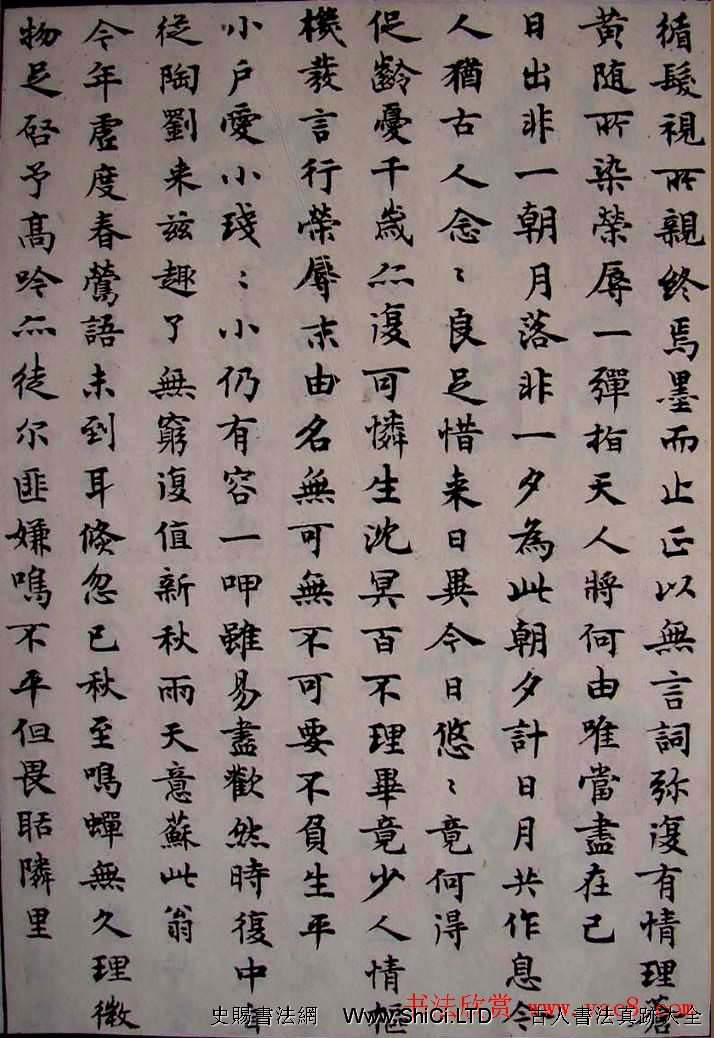 循髮視所親終焉墨而止正以無言詞弥復有情理蒼
黄随所染榮辱一彈指天人將何由唯當盡在己
日出非一朝月落非一夕為此朝夕計日月共作息今
人猶古人念〻良足惜来日異今日悠〻竟何得
促齡憂千歲亦復可憐生沈冥百不理畢竟少人情樞
機發言行榮辱末由名無可無不可要不負生平
小戶愛小琖〻小仍有容一呷雖易盡歡然時復中
從陶劉来兹趣了無窮復值新秋雨天意蘇此翁
今年虛度春鶯語未到耳倏忽已秋至鳴蟬無久理徵
物足啓予高吟亦徒尔匪嫌鳴不平但畏聒隣里
书法欣赏 www.yac8.com
史賜書法網 www.ShiCi.LTD 古人書法真跡大全